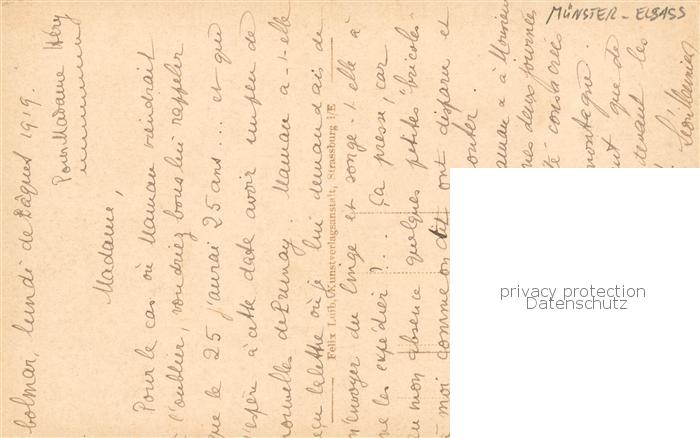 MÜNSTER - ELSASS
Colmar, lundi de Pâques 1919.
Pour Madame Héry
Madame,
Pour le cas où Maman viendrait
à l'oublier, voudriez-vous lui rappeler
que le 25 j'aurai 25 ans... et que
j'espère à cette date avoir un peu de
nouvelles de Maman a-t-elle
reçu la lettre où je lui demandais de
m'envoyer du linge et songe-t-elle à
me les expédier ?.. Ça presse, car
en mon absence quelques petites "bricoles"
à moi comme on dit ont disparu et
Maman a Monsieur
mes deux journées
consacrées
montagne.
que de
tenant les
Felix Luib, Kunstverlagsanstalt, Strassburg i/E
privacy protection
Datenschutz